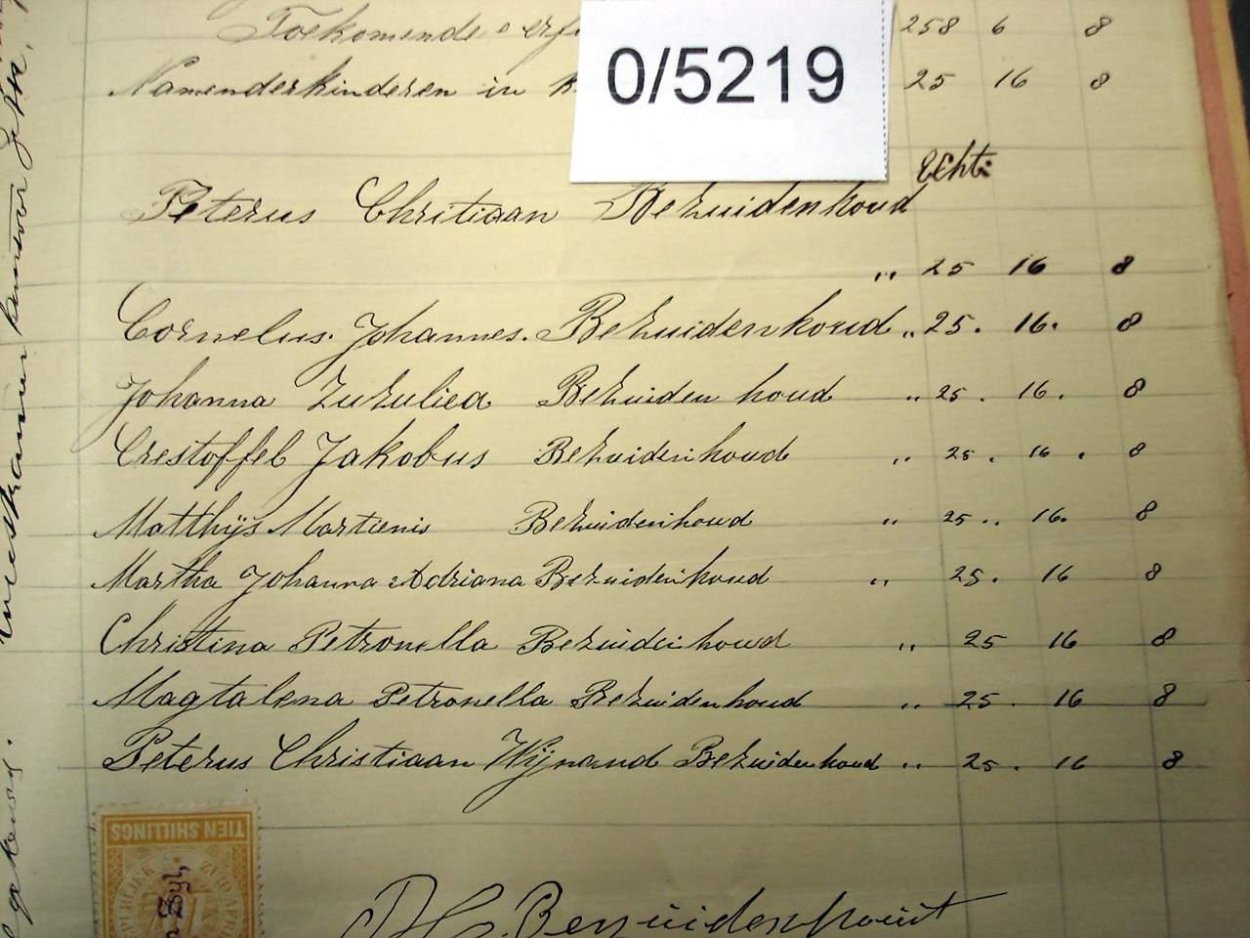 Toekomende erf 258 6 8
Namen der kinderen in 25 16 8
0/5219
Echt:
Peterus Chritiaan Bezuidenhoud
" 25 16 8
Cornelus. Johannes. Bezuidenhoud " 25. 16. 8
Johanna Zuzuliea Bezuiden houd " 25. 16. 8
Crestoffel Jakobus Bezuidenhoud " 25. 16. 8
Matthijs Martienis Bezuidenhoud " 25.. 16. 8
Martha Johanna Adriana Bezuidenhoud " 25. 16 8
Christina Petronella Bezuidenhoud " 25 16 8
Magtalena Petronella Bezuidenhoud " 25. 16 8
Peterus Christiaan Wijnand Bezuidenhoud " 25. 16 8
TIEN SHILLINGS
ZUID AFR
Zyl,
Bezuidenhout